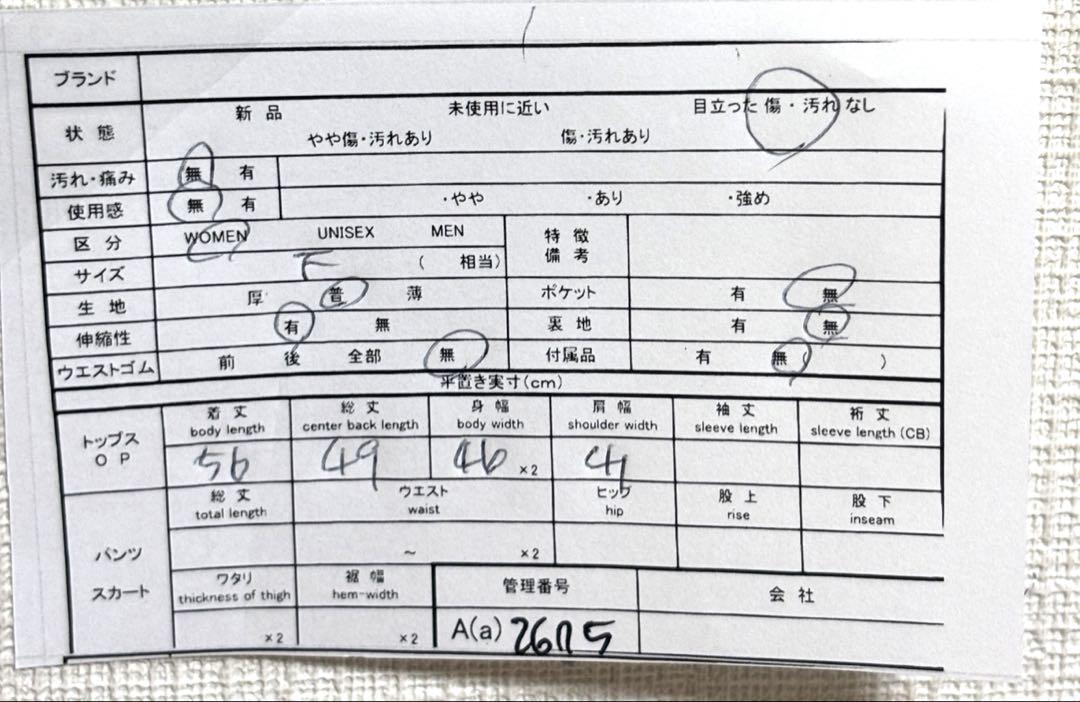 ブランド
状態 新品 未使用に近い 目立った傷・汚れなし
やや傷・汚れあり 傷・汚れあり
汚れ・痛み 無 有
使用感 無 有 ・やや ・あり ・強め
区分 WOMEN UNISEX MEN 特徴
備考
サイズ ( 相当)
生地 厚 普 薄 ポケット 有 無
伸縮性 有 無 裏地 有 無
ウエストゴム 前 後 全部 無 付属品 有 無( )
平置き実寸(cm)
トップス
OP
着丈 総丈 身幅 肩幅 袖丈 裄丈
body length center back length body width shoulder width sleeve length sleeve length (CB)
56 49 46 ×2
総丈 ウエスト ヒップ 股上 股下
total length waist hip rise inseam
パンツ ~ ×2
スカート
ワタリ 裾幅 管理番号 会社
thickness of thigh hem-width
×2 ×2 A(a)